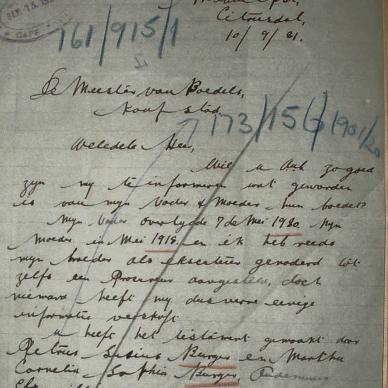 SEP 15 192
CAPE
Citrusdal,
10/9/21.
161/915/1
De Meester van Boedels,
Kaapstad
173/156/1901/20
Weledele Heer,
Wil u Asb zo goed
zyn my te informeren wat geworden
is van myn Vader & Moeder hun boedel?
Myn Vader overlyde 7 de Mei 1920 Myn
Moeder in Mei 1918 en ik heb reeds
myn broeder als eksekuteur genoderd tot
zelfs een Procureur aangesteld, doch
niemand heeft my dus verre eenige
informatie verschaft
U heeft het testament gemaakt door
Petrus Burger en Martha
Cornelia Sophia Burger,